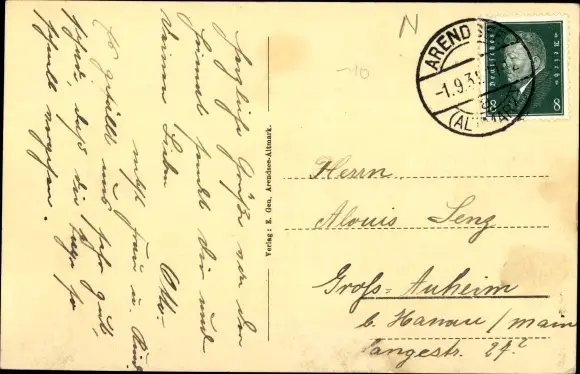 Herzliche Grüße von der
sendet dir und
deinen Lieben Otto.
nebst Frau u. Kind
Es gefällt uns sehr gut,
schade, daß die Tage so
schnell vergehen.
Verlag: E. Gen, Arendsee-Altmark.
N
-10
ARENDSEE
-1.9.31
(ALTMARK)
Deutsches Reich
8 8
Herrn
Alouis Lenz
Groß-Auheim
b. Hanau / Main
Langestr. 27²